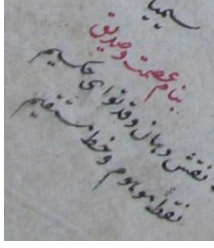 سیمیا
بنام عصمت و صدیق
نقش دهان و قد تو ای حکیم
نقطهٔ موهوم و خط مستقیم